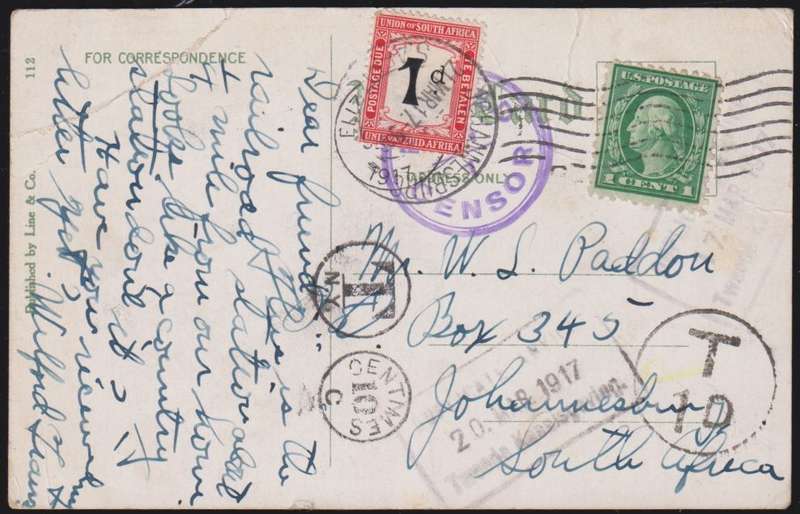 112
FOR CORRESPONDENCE
Published by Line & Co.
Dear friend:
This is the
railroad station about
1/4 mile from our home
Looks like a country
station don't it?
Have you received my
letter yet?
Wilford
UNION OF SOUTH AFRICA
POSTAGE DUE
TE BETALEN
1d
UNIE VAN ZUID AFRIKA
ADDRESS ONLY
CENSOR
U.S. POSTAGE
1 CENT 1
Mr. W. L. Paddon
Box 345
Johannesburg
South Africa
T
N.Y.
CENTIMES
10
C
20. MAR. 1917
T
1D